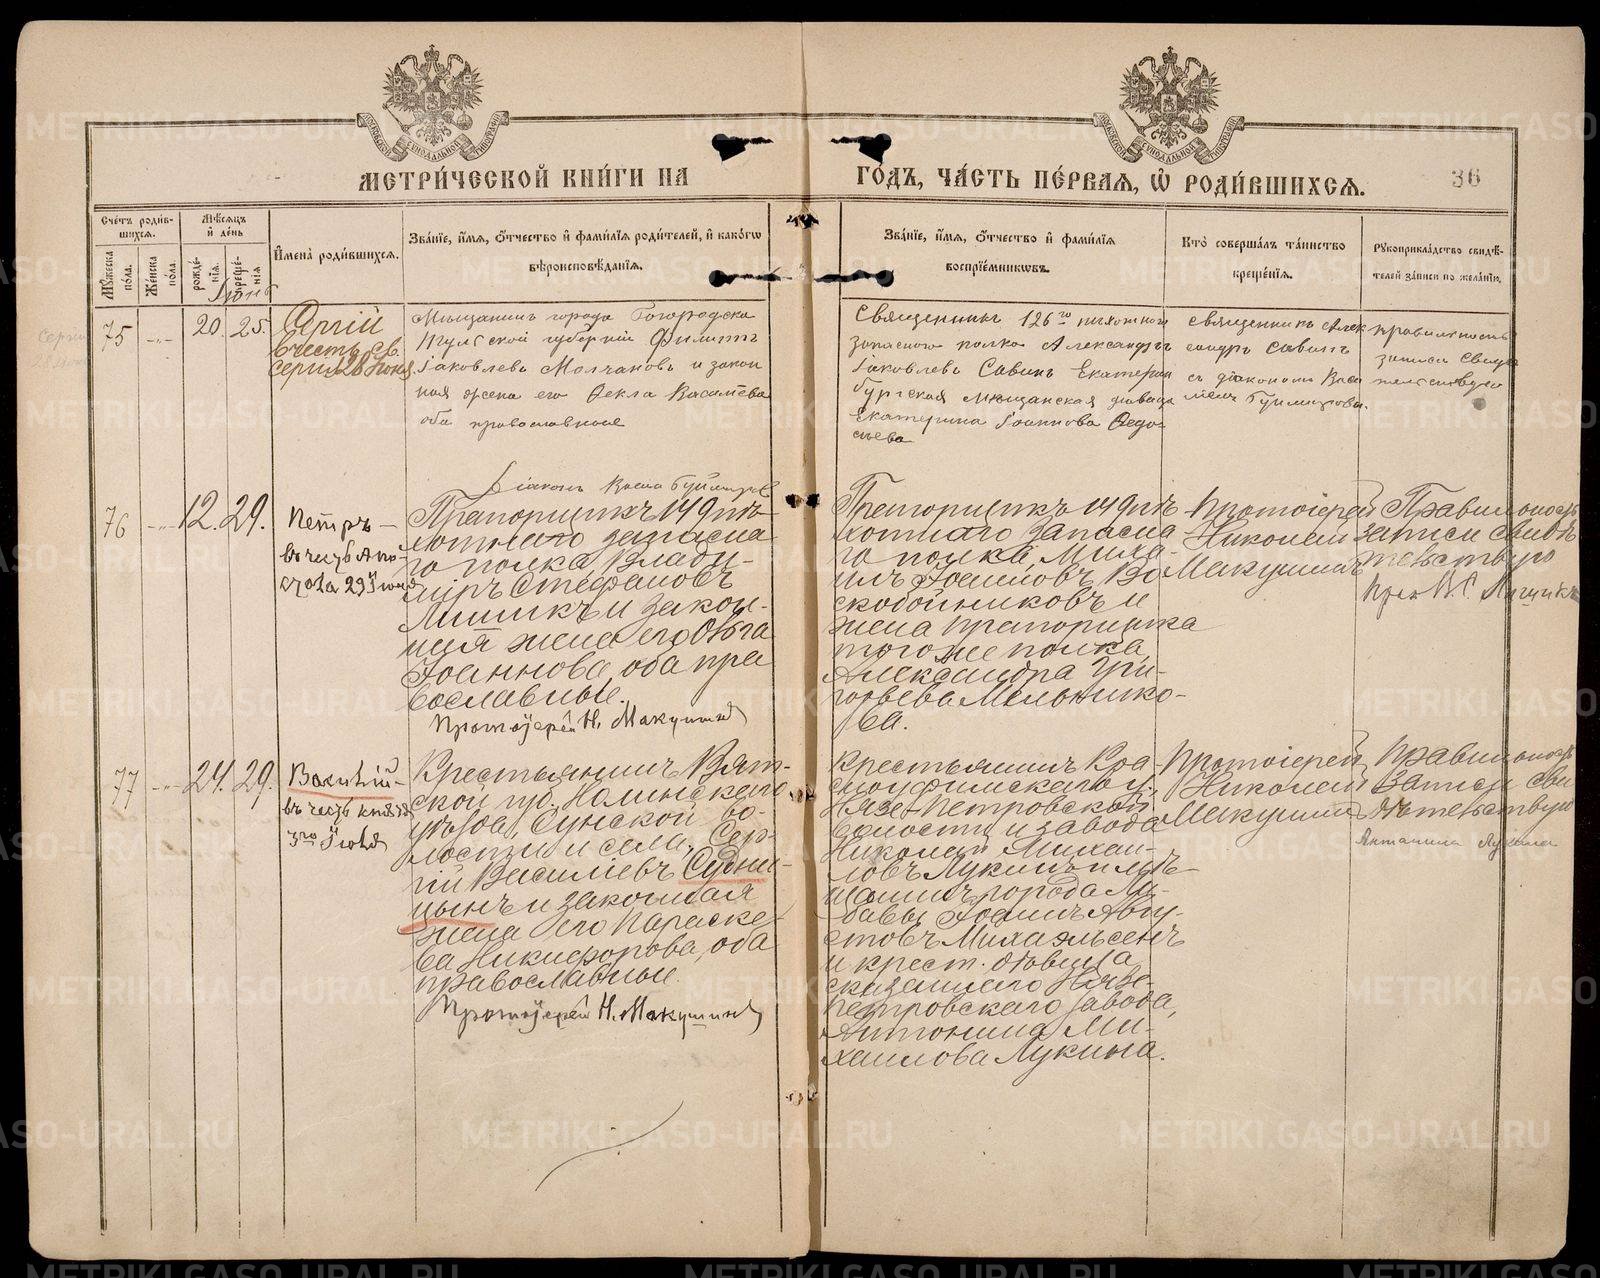 МЕТРИ́ЧЕСКОЙ КНИ́ГИ НА
ГО́ДЪ, ЧА́СТЬ ПЕ́РВАЯ, Ѽ РОДИ́ВШИХСЯ.
36
Сче́тъ роди́вшихся.
Му́жеска по́ла.
Же́нска по́ла.
Мѣ́сяцъ и҆ де́нь
рожде́нїя.
креще́нїя
И҆мена̀ роди́вшихся.
Зва́нїе, и҆́мя, ѻ҆́тчество и҆ фами́лїя роди́телей, и҆ како́гѡ
вѣроисповѣ́данїя.
Зва́нїе, и҆́мя, ѻ҆́тчество и҆ фами́лїя
воспрїе́мниковъ.
Кто̀ соверша́лъ та́инство
креще́нїя.
Рукоприкла́дство свидѣ́-
телей за́писи по жела́нїю.
Іюнь
75
20. 25.
Сергій
въ честь св.
Мѣщанинъ города Богородска
Тульской губерніи Филиппъ
Іаковлевъ Молчановъ и закон
ная жена его Ѳекла Васильева
оба православные
Діаконъ
Священникъ 126го пѣхотнаго
запаснаго полка Александръ
Іаковлевъ Савинъ Екатерин
бургская мѣщанская дѣвица
Екатерина Іоаннова Ѳедо-
сѣева
Священникъ Алек
сандръ Савинъ
съ діакономъ Васи
ліемъ
правильность
записи свидѣ
тельствую
76
12. 29.
Петръ —
въ честь Апо-
стола 29 Іюня
Прапорщикъ 149 пѣ-
хотнаго запасна
го полка Влади-
міръ Стефановъ
и закон-
ная жена его Ольга
Іоаннова, оба пра
вославные.
Протоіерей Н. Макушинъ
Прапорщикъ 149 пѣ
хотнаго запасна
го полка, Миха-
илъ Іосифовъ Во
скобойниковъ и
жена прапорщика
того же полка
Александра Гри-
горьева Мельнико-
ва.
Протоіерей
Николай
Макушинъ
Правильность
записи свидѣ
тельствую
77
24. 29.
Василій —
въ честь князя
3го Іюля
Крестьянинъ Вят-
ской губ. Нолинскаго
уѣзда, Сунской во-
лости и села, Сер-
гій Василіевъ Судни-
цынъ и законная
жена его Параске-
ва Никифорова, оба
православные.
Протоіерей Н. Макушинъ
Крестьянинъ Кра-
сноуфимскаго у.,
Нязе-Петровской
волости и завода
Николай Михаи-
ловъ Лукинъ и мѣ-
щанинъ города Ли-
бавы Іоаннъ Авгу-
стовъ Михаэльсенъ
и крест. дѣвица
сказаннаго Нязе-
Петровскаго завода,
Антонина Ми-
хаилова Лукина.
Протоіерей
Николай
Макушинъ
Правильность
записи сви
дѣтельствую
Антонина Лукина
METRIKI.GASO-URAL.RU